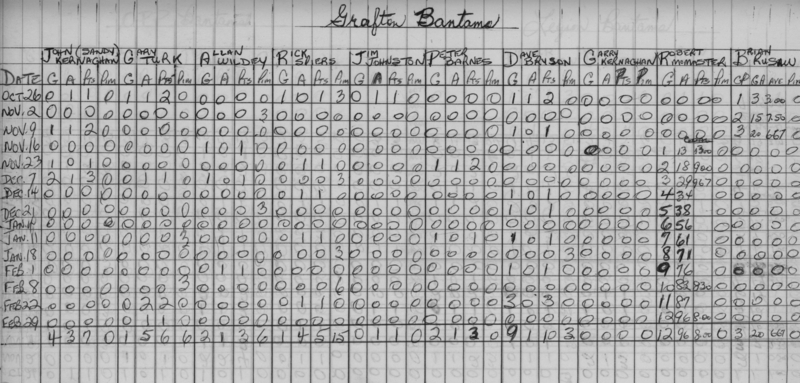 Grafton Bantams
JOHN (SANDY) KERNAGHAN GARY TURK ALLAN WILDEY RICK SPIERS JIM JOHNSTON PETER BARNES DAVE BRYSON GARRY KERNAGHAN ROBERT BRIAN
DATE G A Pts Pim G A Pts Pim G A Pts Pim G A Pts Pim G A Pts Pim G A Pts Pim G A Pts Pim G A Pts Pim G A Pts Pim GP GA AVE Pim
OCT. 26 0 1 1 0 1 1 2 0 0 0 0 0 1 0 1 3 0 1 1 0 0 0 0 0 1 1 2 0 0 0 0 0 0 0 0 0 1 3 3.00 0
NOV. 2 0 0 0 0 0 0 0 0 0 0 0 3 0 0 0 0 0 0 0 0 0 0 0 0 0 0 0 0 0 0 0 0 2 15 7.50 0
NOV. 9 1 1 2 0 0 0 0 0 0 0 0 0 0 0 0 0 0 0 0 0 0 0 0 0 1 0 1 0 0 0 0 0 3 20 667 0
NOV. 16 0 0 0 0 0 0 0 0 1 0 1 0 0 0 0 0 0 0 0 0 0 0 0 0 0 0 0 0 0 0 0 0 1 13 1300
NOV. 23 1 0 1 0 0 0 0 0 0 0 0 0 0 1 1 0 0 0 0 0 1 1 2 0 0 0 0 0 0 0 0 0 2 18 900
DEC. 7 2 1 3 0 0 1 1 0 1 0 1 0 0 0 0 3 0 0 0 0 0 0 0 0 0 0 0 0 0 0 0 0 3 29 967
DEC 14 0 0 0 0 0 0 0 0 0 0 0 0 0 1 1 0 0 0 0 0 0 0 0 0 1 0 1 0 0 0 0 0 4 34
DEC 21 0 0 0 0 0 0 0 0 0 0 0 3 0 0 0 0 0 0 0 0 0 0 0 0 1 0 1 0 0 0 0 0 5 38
JAN. 4 0 0 0 0 0 0 0 0 0 0 0 0 0 0 0 0 0 0 0 0 0 0 0 0 0 0 0 0 0 0 0 0 6 56
JAN. 11 0 0 0 0 0 0 0 0 0 0 0 0 0 1 1 0 0 0 0 0 1 0 1 0 1 0 1 0 0 0 0 0 7 61
JAN. 18 0 0 0 0 0 0 0 0 0 0 0 0 0 0 3 0 0 0 0 0 0 0 0 0 0 0 3 0 0 0 0 8 71
FEB. 1 0 0 0 0 0 0 0 0 0 1 1 0 0 0 0 0 0 0 0 0 0 0 0 0 1 0 1 0 0 0 0 0 9 76 0 0 0 0
FEB. 8 0 0 0 0 0 0 0 3 0 0 0 0 0 0 0 6 0 0 0 0 0 0 0 0 0 0 0 0 0 0 0 0 10 83 830
FEB 22 0 0 0 0 0 2 2 0 0 0 0 0 0 1 1 0 0 0 0 0 0 0 0 0 3 0 3 0 0 0 0 0 11 87
FEB. 29 0 0 0 0 0 1 1 0 0 0 0 0 0 0 0 0 0 0 0 0 0 0 0 0 0 0 0 0 0 0 0 0 12 96 8.00
4 3 7 0 1 5 6 6 2 1 3 6 1 4 5 15 0 1 1 0 2 1 3 0 9 1 10 3 0 0 0 0 12 96 8.00 3 20 667 0